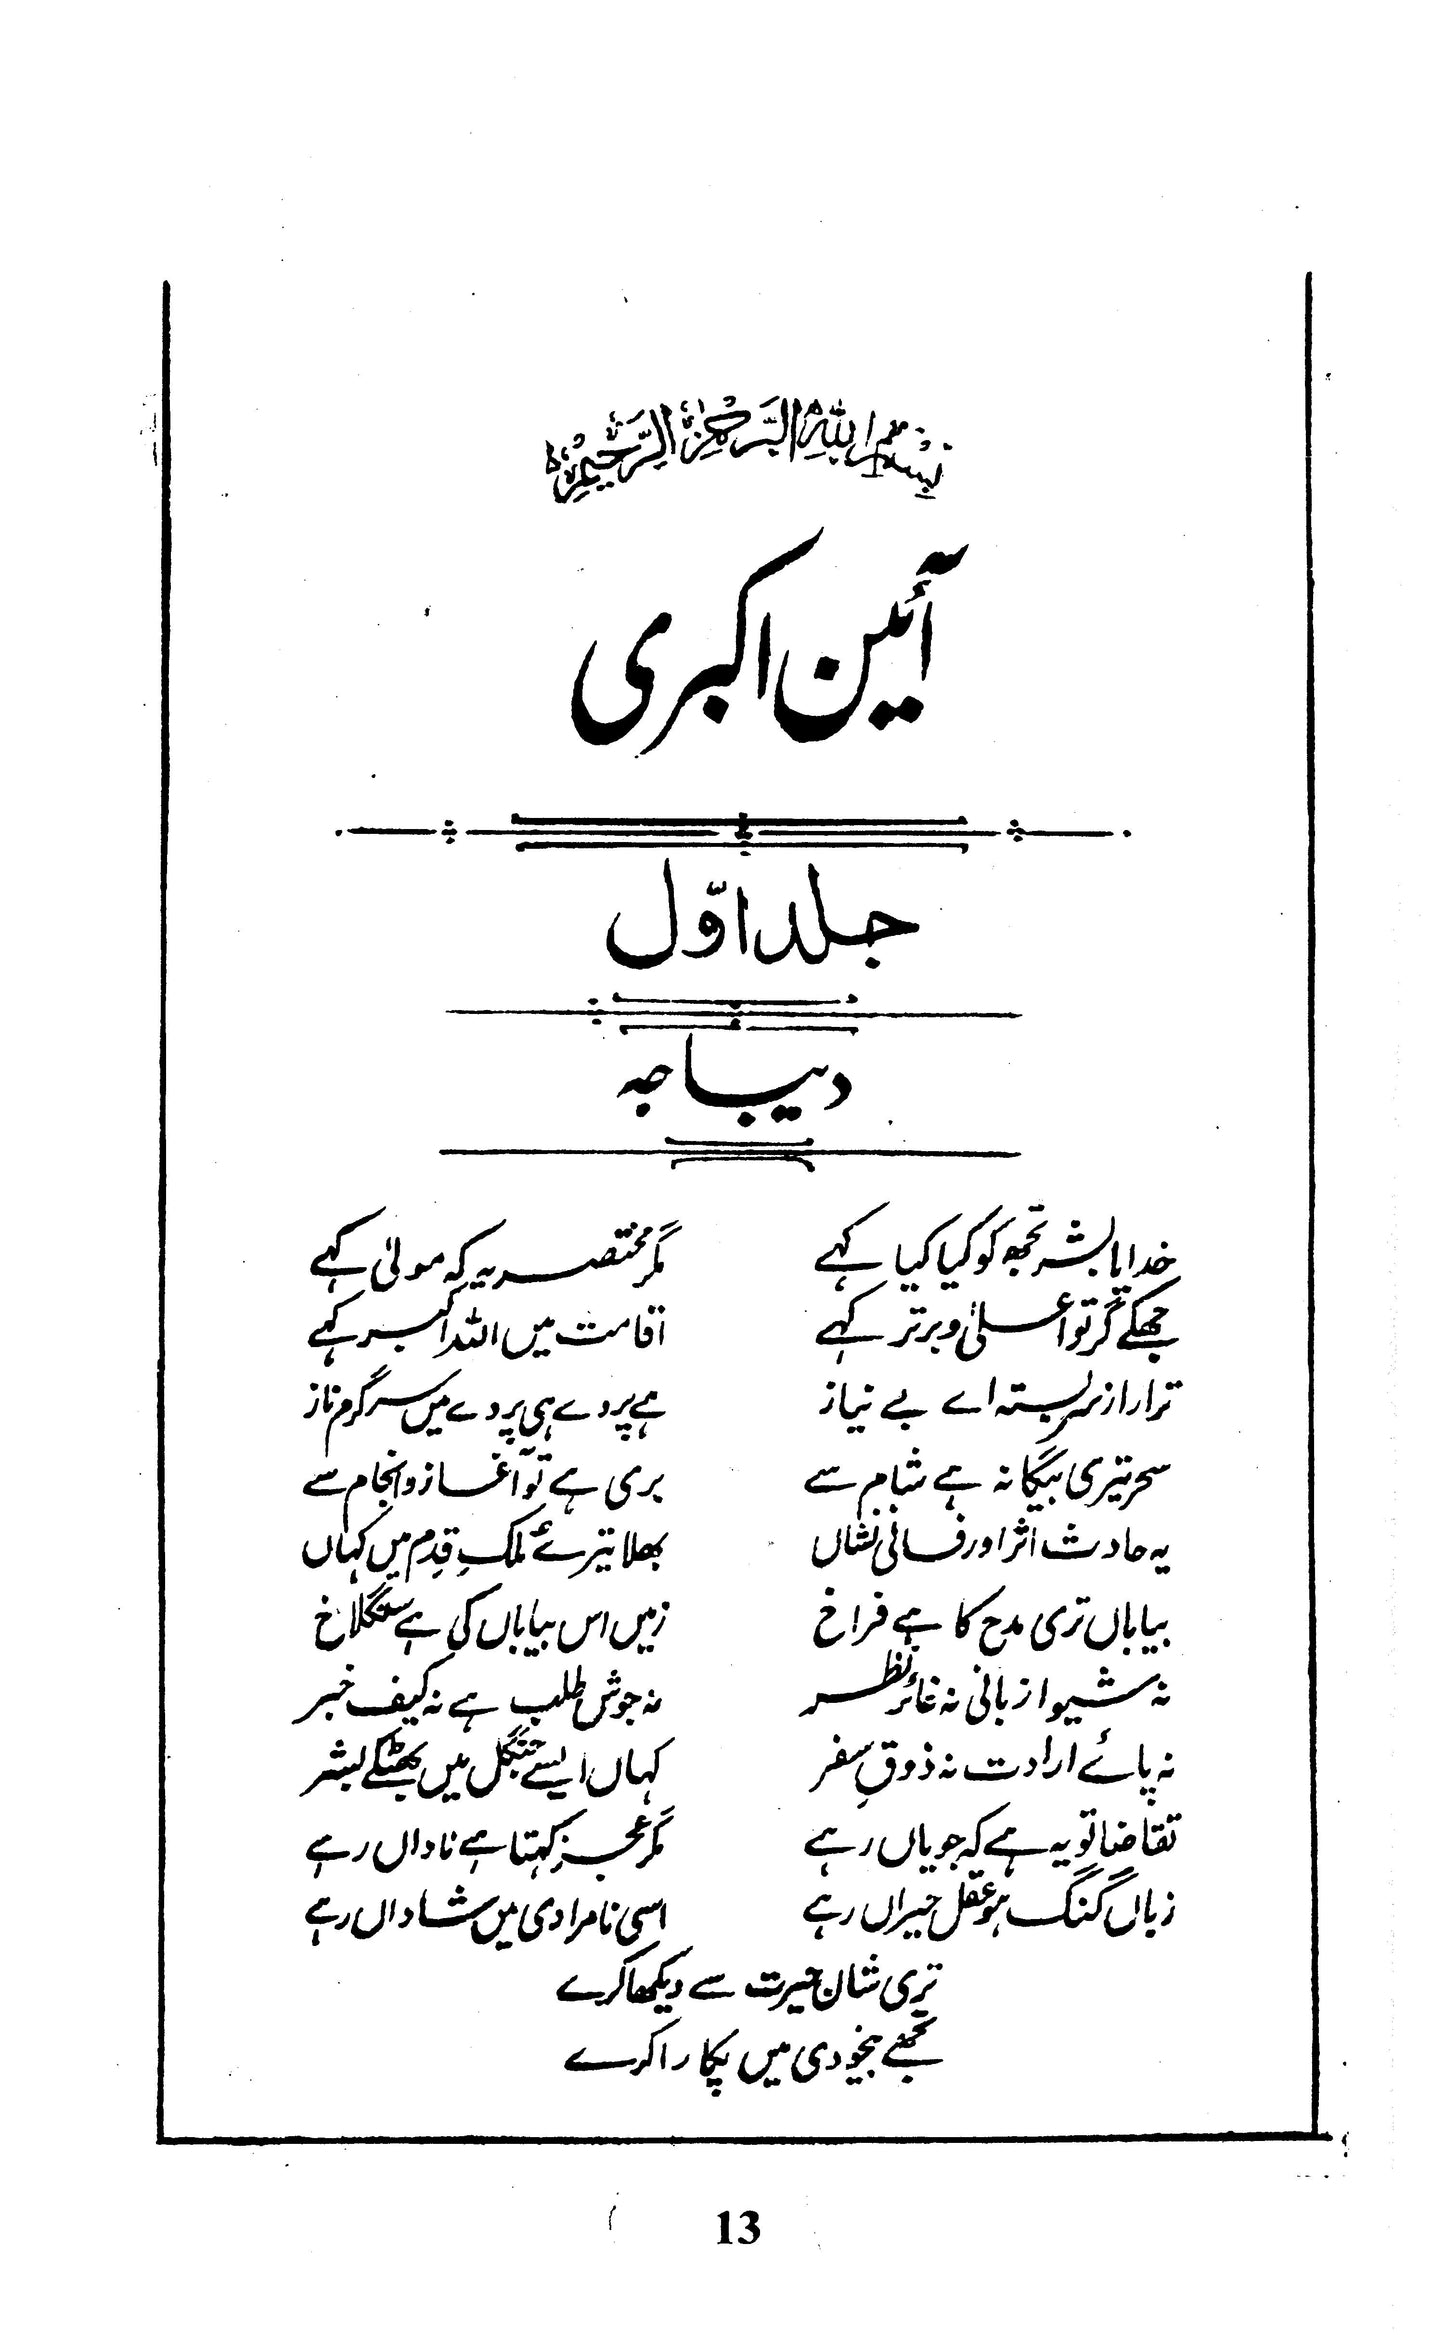 بِسْمِ اللّٰهِ الرَّحْمٰنِ الرَّحِيْمِ
آئین اکبری
جلد اوّل
دیباچہ
خدایا بشر تجھ کو کیا کیا کہے مگر مختصر یہ کہ مولیٰ کہے
جھکے گر تو اعلیٰ و برتر کہے اقامت میں اللہ اکبر کہے
ترا راز سربستہ اے بے نیاز ہے پردے ہی پردے میں سرگرم ناز
سحر تیری بیگانہ ہے شام سے بری ہے تو آغاز و انجام سے
یہ حادث اثر اور فانی نشاں بھلا تیرے ملکِ قِدم میں کہاں
بیاباں تری مدح کا ہے فراخ زمیں اس بیاباں کی ہے سنگلاخ
نہ شیوا زبانی نہ غائر نظر نہ جوش طلب ہے نہ کیف خبر
نہ پائے ارادت نہ ذوقِ سفر کہاں ایسے جنگل میں بھٹکے بشر
تقاضا تو یہ ہے کہ جویاں رہے مگر عجز کہتا ہے ناداں رہے
زباں گنگ ہو عقل حیراں رہے اسی نامرادی میں شاداں رہے
تری شان حیرت سے دیکھا کرے
تجھے بیخودی میں پکارا کرے
13